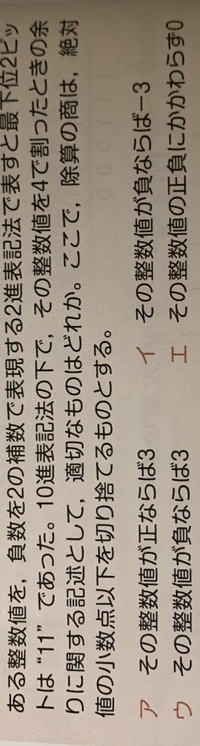 ある整数値を，負数を2の補数で表現する2進表記法で表すと最下位2ビッ
トは“11”であった。10進表記法の下で，その整数値を4で割ったときの余
りに関する記述として，適切なものはどれか。ここで，除算の商は，絶対
値の小数点以下を切り捨てるものとする。
ア その整数値が正ならば3 イ その整数値が負ならば－3
ウ その整数値が負ならば3 エ その整数値の正負にかかわらず0